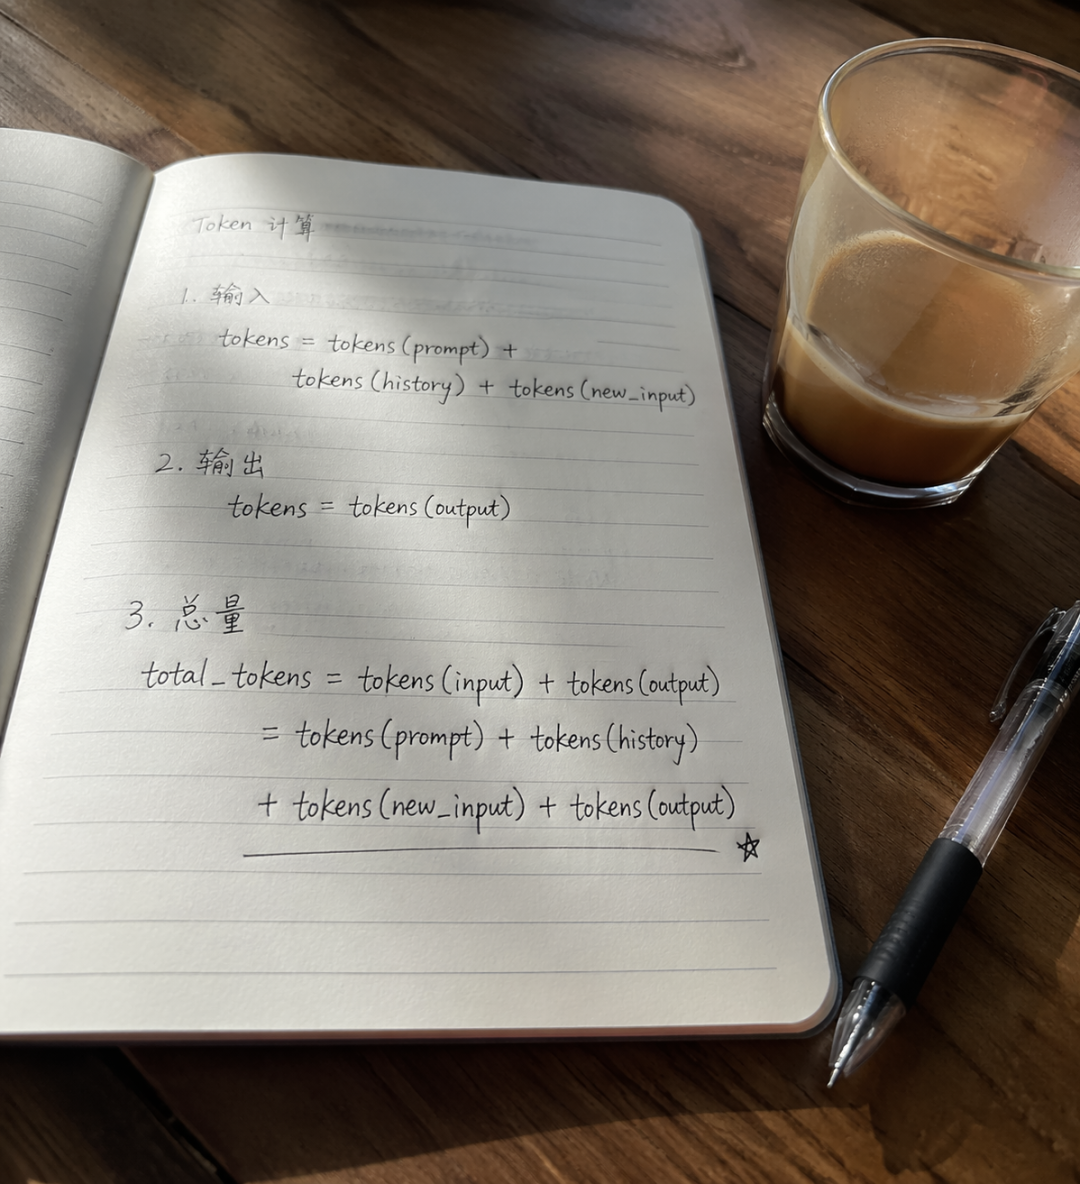 Token 计算
1. 输入
tokens = tokens(prompt) +
tokens(history) + tokens(new_input)
2. 输出
tokens = tokens(output)
3. 总量
total_tokens = tokens(input) + tokens(output)
= tokens(prompt) + tokens(history)
+ tokens(new_input) + tokens(output)